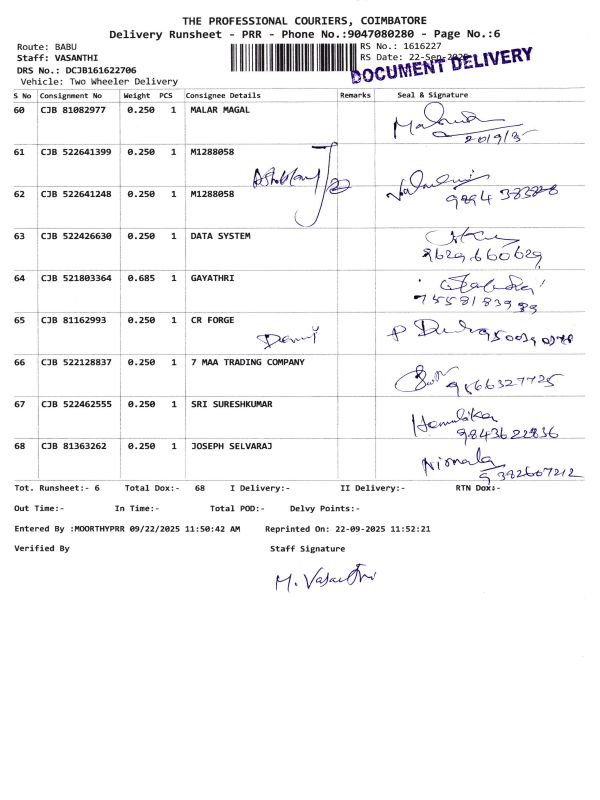 THE PROFESSIONAL COURIERS, COIMBATORE
Delivery Runsheet - PRR - Phone No.:9047080280 - Page No.:6
Route: BABU RS No.: 1616227
Staff: VASANTHI RS Date: 22-Sep-2025
DRS No.: DCJB161622706 DOCUMENT DELIVERY
Vehicle: Two Wheeler Delivery
S No Consignment No Weight PCS Consignee Details Remarks Seal & Signature
60 CJB 81082977 0.250 1 MALAR MAGAL
61 CJB 522641399 0.250 1 M1288058
62 CJB 522641248 0.250 1 M1288058
63 CJB 522426630 0.250 1 DATA SYSTEM
9629660629
64 CJB 521803364 0.685 1 GAYATHRI
7558183989
65 CJB 81162993 0.250 1 CR FORGE
66 CJB 522128837 0.250 1 7 MAA TRADING COMPANY
9566327725
67 CJB 522462555 0.250 1 SRI SURESHKUMAR
9843622836
68 CJB 81363262 0.250 1 JOSEPH SELVARAJ Nirmala
9382607212
Tot. Runsheet:- 6 Total Dox:- 68 I Delivery:- II Delivery:- RTN Dox:-
Out Time:- In Time:- Total POD:- Delvy Points:-
Entered By :MOORTHYPRR 09/22/2025 11:50:42 AM Reprinted On: 22-09-2025 11:52:21
Verified By Staff Signature
M. Vasanthi